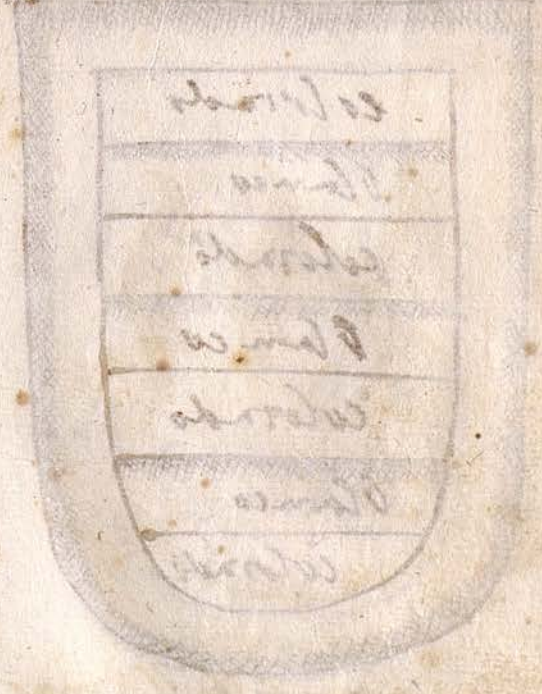 colorado
blanco
colorado
blanco
colorado
blanco
colorado